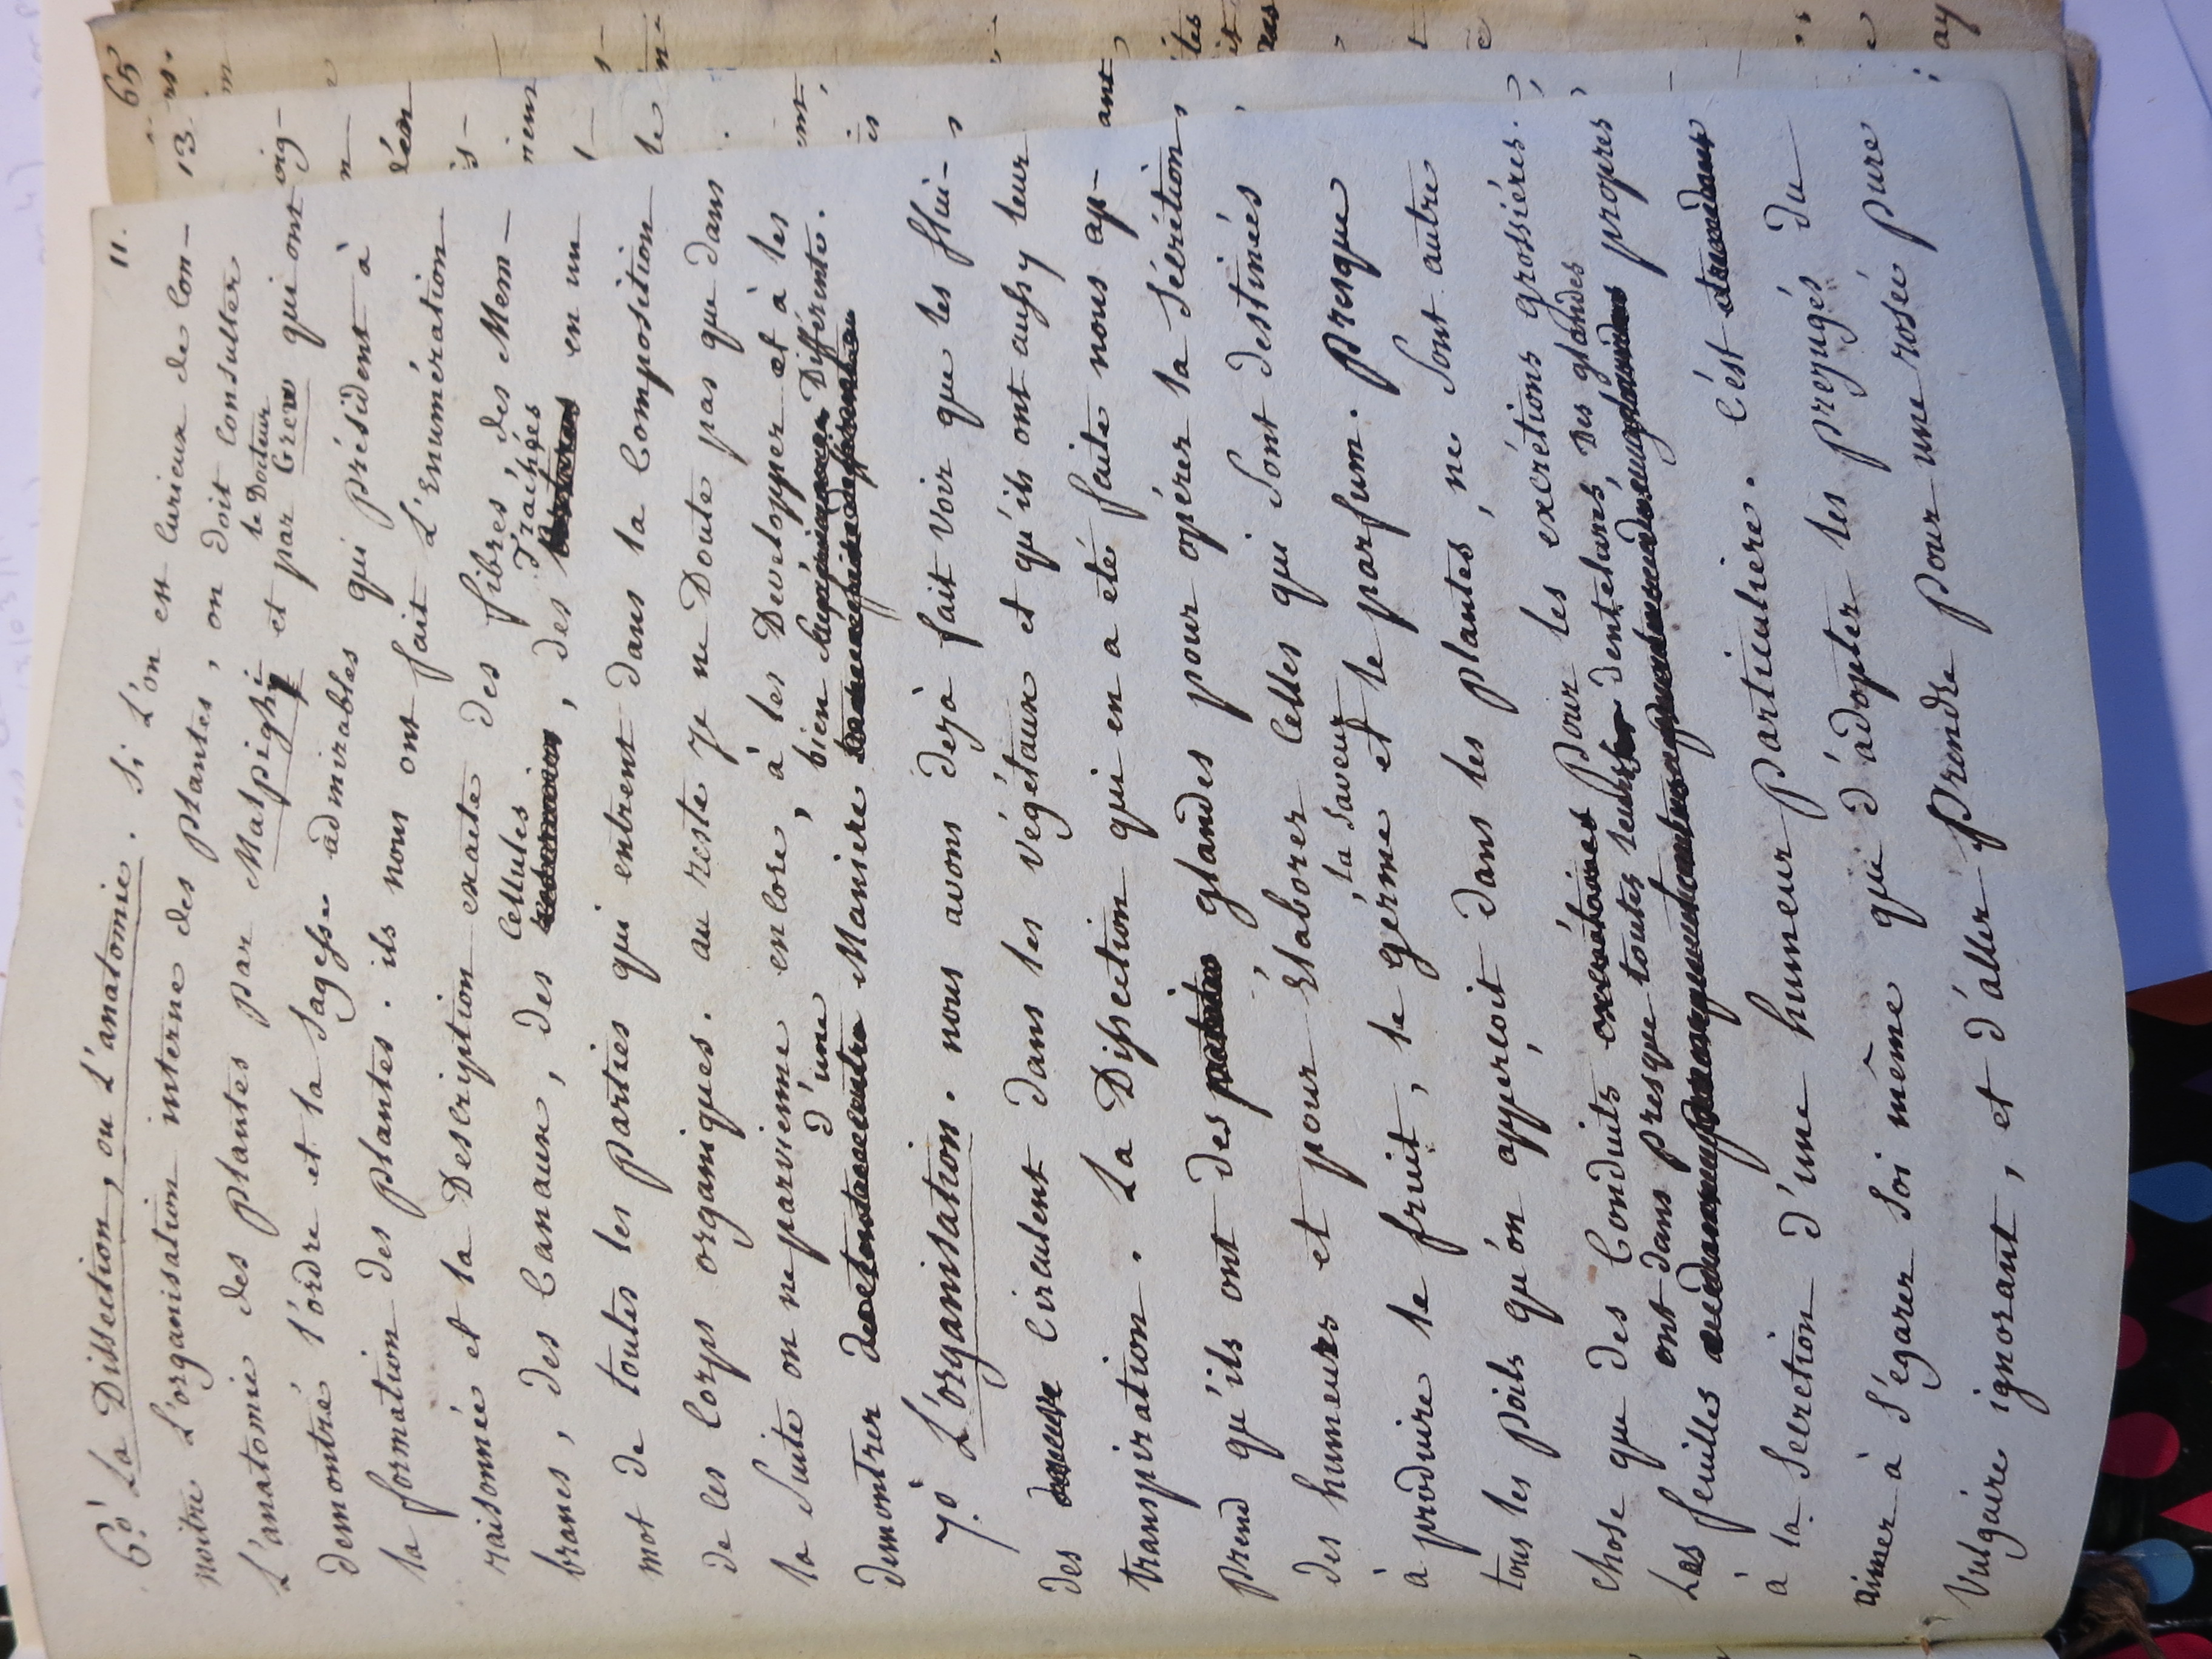 11.
6.° La Dissection, ou L'anatomie. Si L'on est Curieux de Con-
noitre L'organisation interne des plantes, on doit Consulter
le Docteur
L'anatomie des plantes par Malpighi et par Grew qui ont
demontré l'ordre et la sagesse admirables qui président à
la formation des plantes. ils nous ont fait L'Enumération
raisonnée et la Description exacte des fibres, des Mem-
Cellules Trachées
branes, des Canaux, des , des en un
mot de toutes les parties qui entrent dans la Composition
de ces Corps organiques. au reste je ne Doute pas que dans
la Suite on ne parvienne encore, à les Developper et à les
d'une bien Différente.
demontrer Maniere
7.° L'organisation. nous avons dejà fait voir que les flui-
des Circulent dans les végétaux et qu'ils ont aussy leur
transpiration. La Dissection qui en a eté faite nous ap-
prend qu'ils ont des glandes pour opérer la Sécrétion
des humeurs et pour Elaborer Celles qui Sont destinées
la Saveur
à produire le fruit, le gérme et le parfum. presque
tous les poils qu'on apperçoit dans les plantes, ne Sont autre
chose que des Conduits Pour les excrétions grossiéres.
ont dans presque toutes leurs dentelures, Des glandes
Les feuilles propres
à la Secretion d'une humeur particuliere. C'est
aimer à S'égarer Soi même que d'adopter les prejugés du
Vulgaire ignorant, et d'aller Prendre pour une rosée pure
65
13.